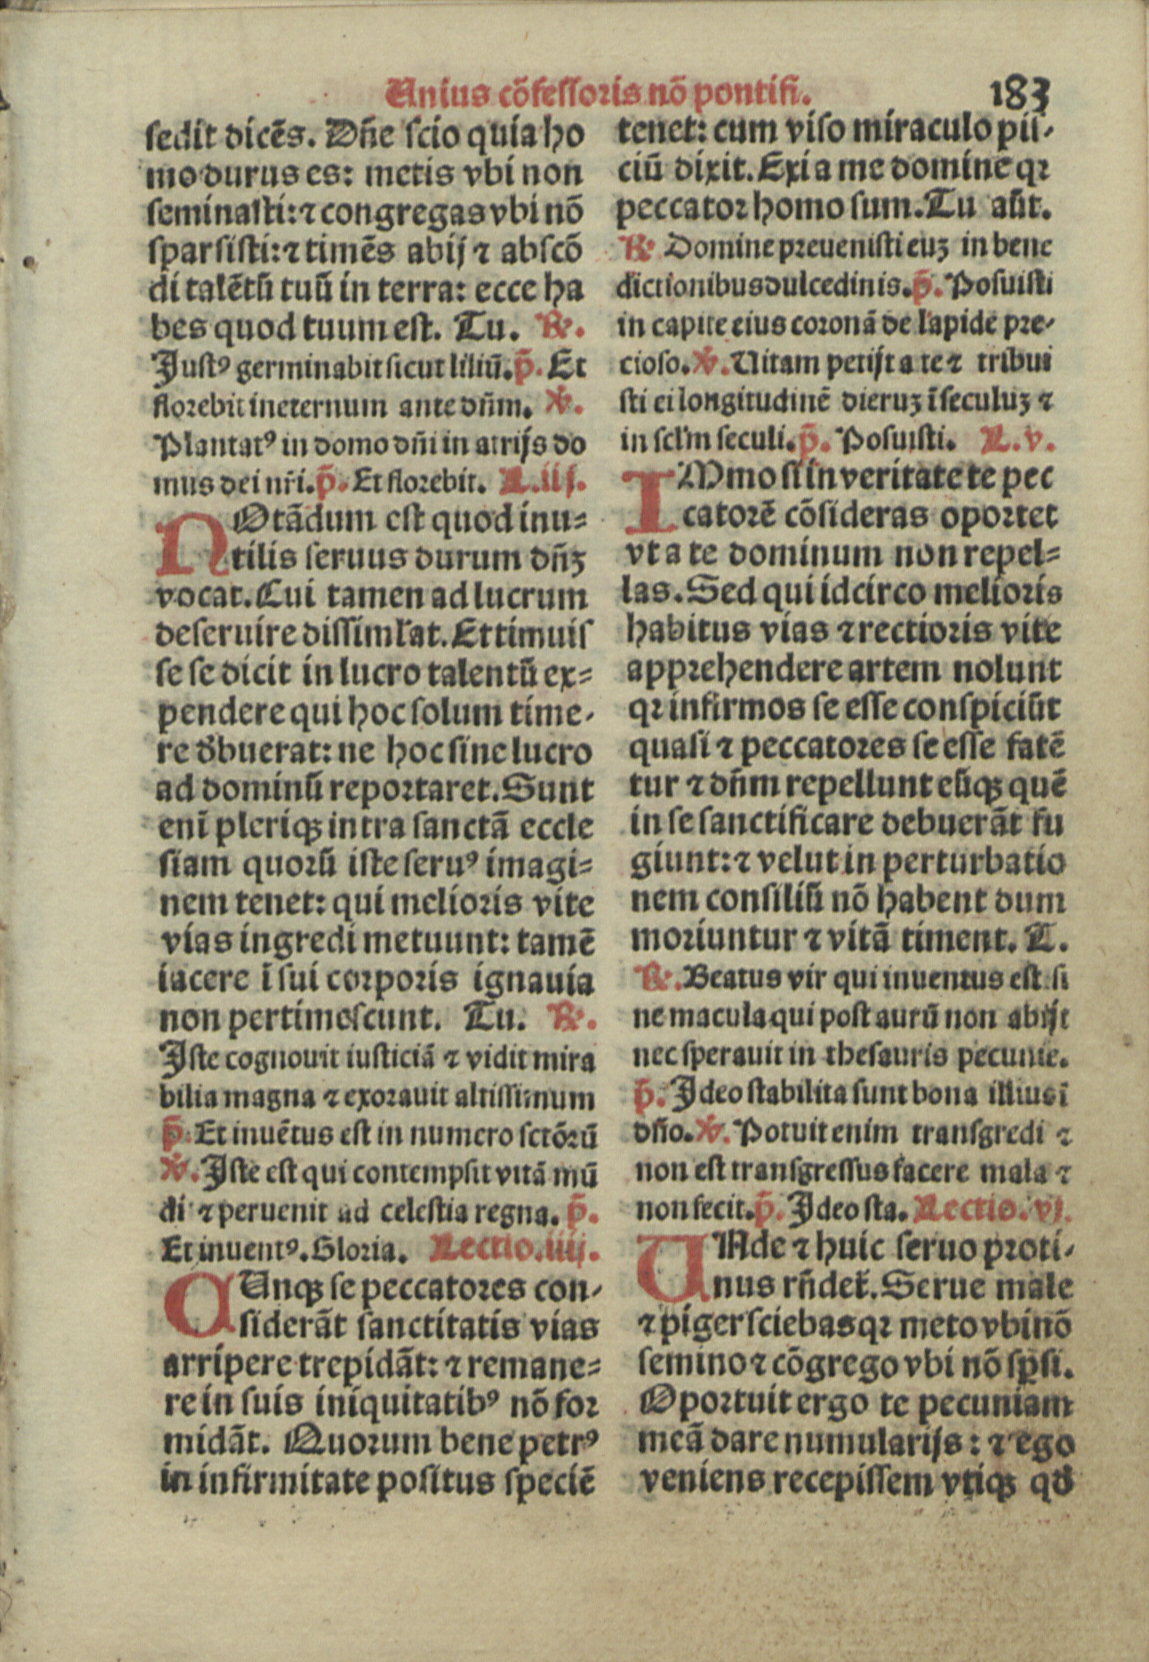 Unius cõfessoris nõ pontifi. 183
sedit dicẽs. Dñe scio quia ho
mo durus es: metis vbi non
seminasti: ⁊ congregas vbi nõ
sparsisti: ⁊ timẽs abij ⁊ abscõ
di talẽtũ tuũ in terra: ecce ha
bes quod tuum est. Tu. ℟.
Justꝰ germinabit sicut liliũ. p̃. Et
florebit ineternum ante dñm. ℣.
Plantatꝰ in domo dñi in atrijs do
mus dei nr̃i. p̃. Et florebit. L.iij.
NOtãdum est quod inu⸗
tilis seruus durum dñꝫ
vocat. Cui tamen ad lucrum
deseruire dissiml'at. Et timuis
se se dicit in lucro talentũ ex⸗
pendere qui hoc solum time⸗
re d̾buerat: ne hoc sine lucro
ad dominũ reportaret. Sunt
enĩ pleriqꝫ intra sanctã eccle
siam quorũ iste seruꝰ imagi⸗
nem tenet: qui melioris vite
vias ingredi metuunt: tamẽ
iacere ĩ sui corporis ignauia
non pertimescunt. Tu. ℟.
Iste cognouit iusticiã ⁊ vidit mira
bilia magna ⁊ exorauit altissimum
p̃. Et inuẽtus est in numero sctõrũ
℣. Iste est qui contempsit vitã mũ
di ⁊ peruenit ad celestia regna. p̃.
Et inuentꝰ. Gloria. Lectio.iiij.
CUnqꝫ se peccatores con⸗
siderãt sanctitatis vias
arripere trepidãt: ⁊ remane⸗
re in suis iniquitatibꝰ nõ for
midãt. Quorum bene petrꝰ
in infirmitate positus speciẽ
tenet: cum viso miraculo pis⸗
ciũ dixit. Exi a me domine qꝛ
peccator homo sum. Tu aũt.
℟. Domine preuenisti euꝫ in bene
dictionibus dulcedinis. p̃. Posuisti
in capite eius coronã de lapide pre⸗
cioso. ℣. Uitam petijt a te ⁊ tribui
sti ei longitudinẽ dieruꝫ ĩ seculuꝫ ⁊
in scl'm seculi. p̃. Posuisti. L.v.
IMmo si in veritate te pec
catorẽ cõsideras oportet
vt a te dominum non repel⸗
las. Sed qui idcirco melioris
habitus vias ⁊ rectioris vite
apprehendere artem nolunt
qꝛ infirmos se esse conspiciũt
quasi ⁊ peccatores se esse fatẽ
tur ⁊ dñm repellunt eũqꝫ quẽ
in se sanctificare debuerãt fu
giunt: ⁊ velut in perturbatio
nem consiliũ nõ habent dum
moriuntur ⁊ vitã timent. T.
℟. Beatus vir qui inuentus est si
ne macula qui post aurũ non abijt
nec sperauit in thesauris pecunie.
p̃. Ideo stabilita sunt bona illius ĩ
dño. ℣. Potuit enim transgredi ⁊
non est transgressus facere mala ⁊
non fecit. p̃. Ideo sta. Lectio.vj.
UNde ⁊ huic seruo proti⸗
nus rñdet̃. Serue male
⁊ piger sciebas qꝛ meto vbi nõ
semino ⁊ cõgrego vbi nõ sp̱si.
Oportuit ergo te pecuniam
meã dare numularijs: ⁊ ego
veniens recepissem vtiqꝫ qd̾